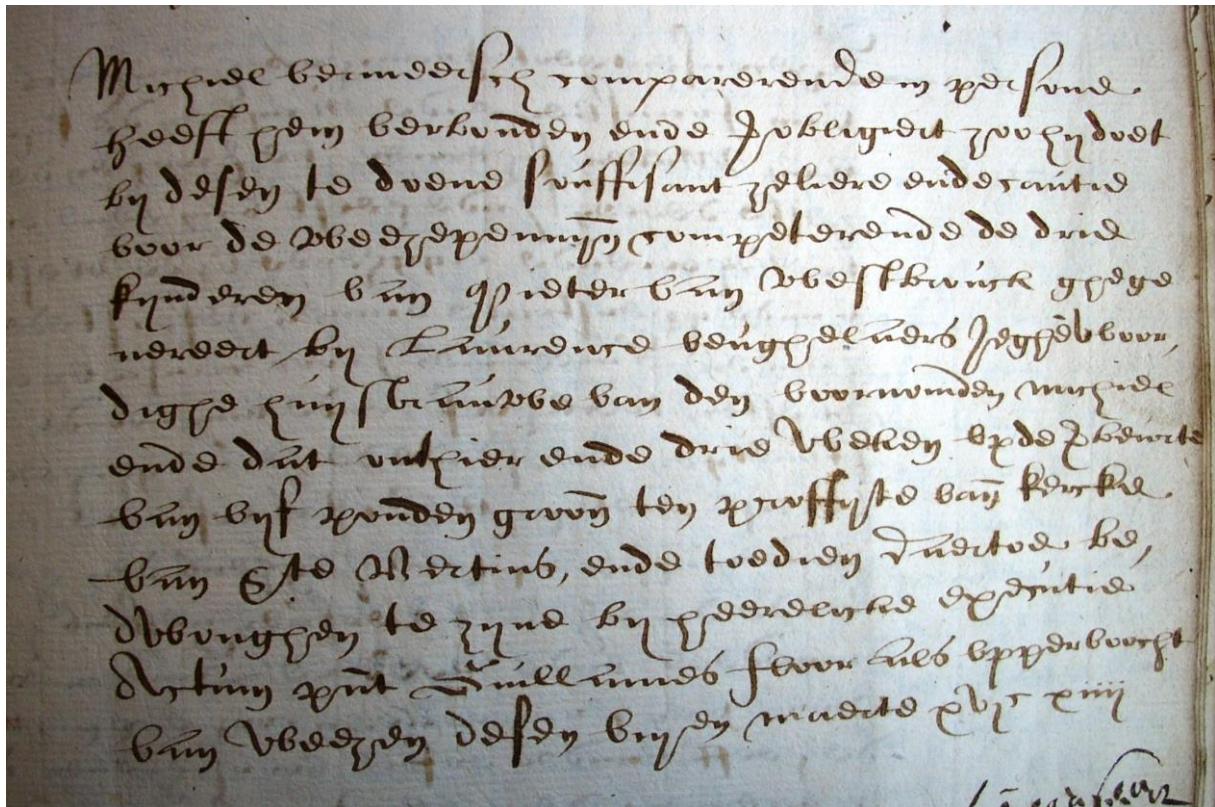 Michiel vermeersch comparerende in persone
heeft hem verbonden ende gobligiert zoo hy doet
by desen te doene souffisant zekere ende cautie
voor de weezepennyn competerende de drie
kynderen van Pieter van westbrouck ghege
nereert by Laurence beughelaers Jeghewoor,
dighe huusvrauwe van den voornomden michiel
ende dat vuthier ende drie weken up de verbeurte
van vyf ponden groon ten proffyte van kercke
van Ste Bertins, ende toedien daertoe be,
dwonghen te zyne by heerelicke executie
Actum pnt Guillames svoor als upperboocht
van weezen desen vysen maerte xvjc xiiij